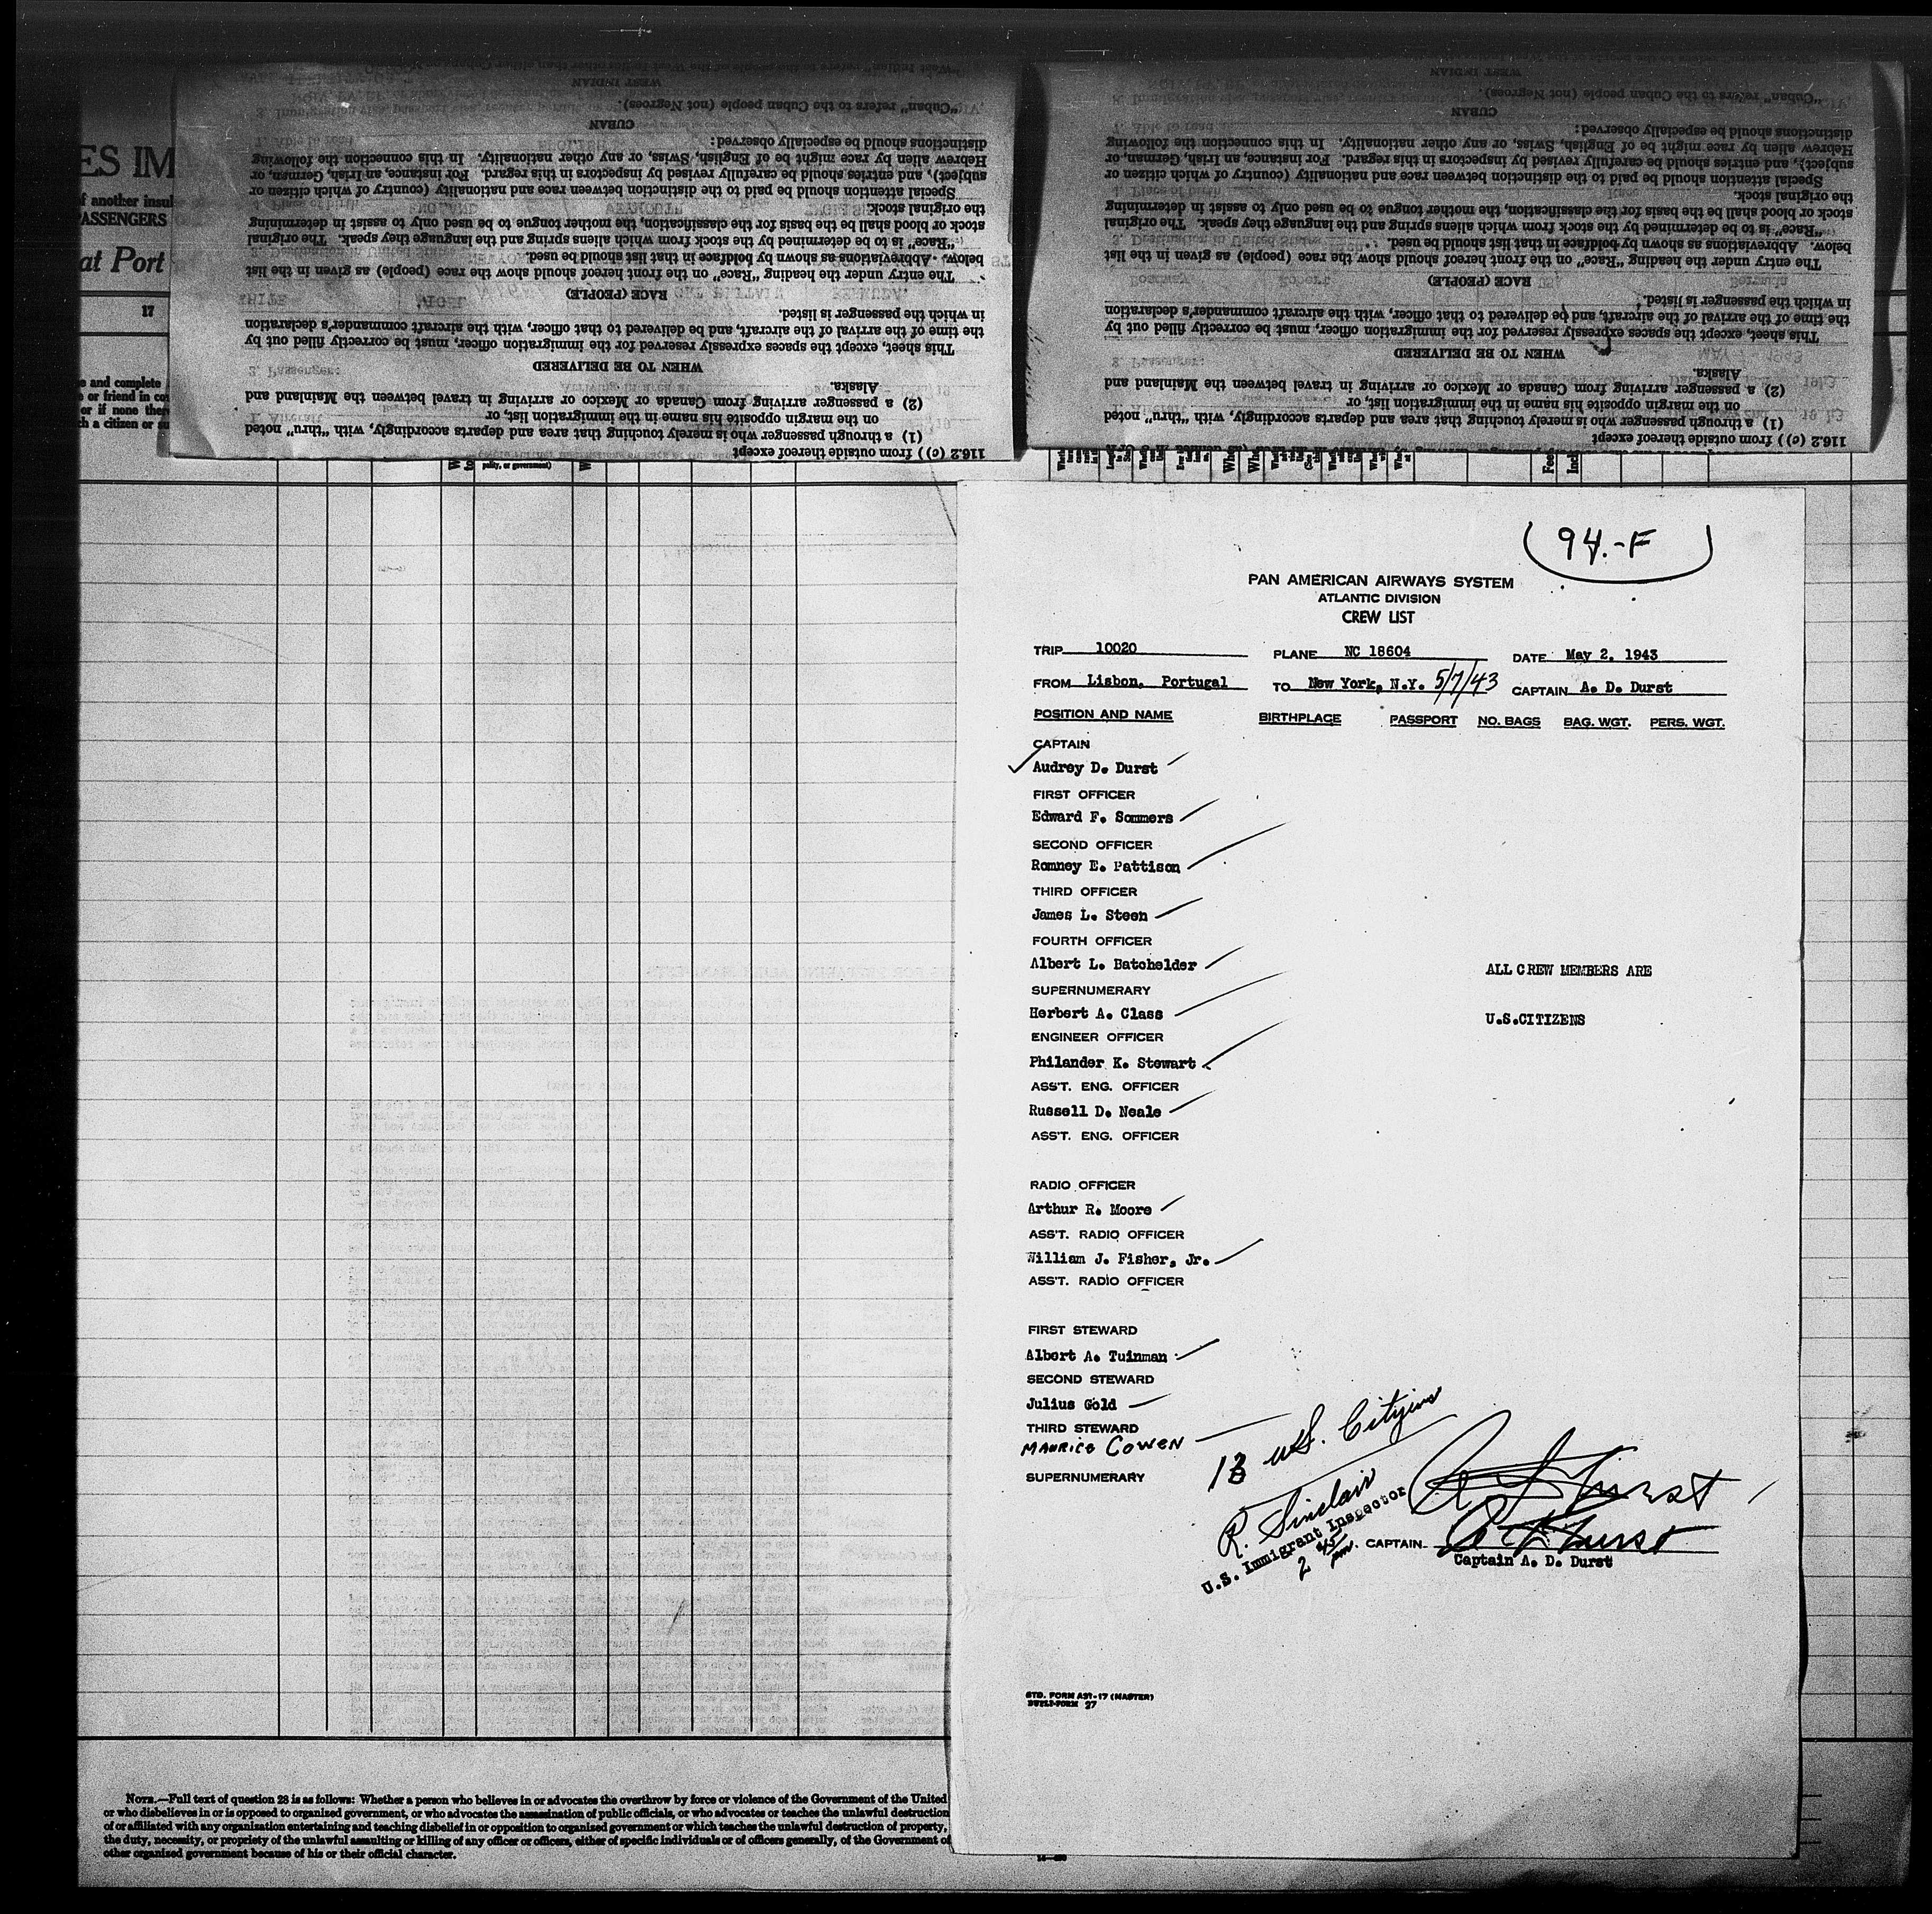 ES IM
f another insul
PASSENGERS
at Port
17
e and complete
e or friend in co
or if none ther
h a citizen or su
116.2 (c)) from outside thereof except
(1) a through passenger who is merely touching that area and departs accordingly, with "thru" noted
on the margin opposite his name in the immigration list, or
(2) a passenger arriving from Canada or Mexico or arriving in travel between the Mainland and
Alaska.
WHEN TO BE DELIVERED
This sheet, except the spaces expressly reserved for the immigration officer, must be correctly filled out by
the time of the arrival of the aircraft, and be delivered to that officer, with the aircraft commander's declaration
in which the passenger is listed.
RACE (PEOPLE)
The entry under the heading "Race" on the front hereof should show the race (people) as given in the list
below. Abbreviations as shown by boldface in that list should be used.
"Race" is to be determined by the stock from which aliens spring and the language they speak. The original
stock or blood shall be the basis for the classification, the mother tongue to be used only to assist in determining
the original stock.
Special attention should be paid to the distinction between race and nationality (country of which citizen or
subject), and entries should be carefully revised by inspectors in this regard. For instance, an Irish, German, or
Hebrew alien by race might be of English, Swiss, or any other nationality. In this connection the following
distinctions should be especially observed:
CUBAN
"Cuban" refers to the Cuban people (not Negroes).
WEST INDIAN
116.2 (c)) from outside thereof except
(1) a through passenger who is merely touching that area and departs accordingly, with "thru" noted
on the margin opposite his name in the immigration list, or
(2) a passenger arriving from Canada or Mexico or arriving in travel between the Mainland and
Alaska.
WHEN TO BE DELIVERED
This sheet, except the spaces expressly reserved for the immigration officer, must be correctly filled out by
the time of the arrival of the aircraft, and be delivered to that officer, with the aircraft commander's declaration
in which the passenger is listed.
RACE (PEOPLE)
The entry under the heading "Race" on the front hereof should show the race (people) as given in the list
below. Abbreviations as shown by boldface in that list should be used.
"Race" is to be determined by the stock from which aliens spring and the language they speak. The original
stock or blood shall be the basis for the classification, the mother tongue to be used only to assist in determining
the original stock.
Special attention should be paid to the distinction between race and nationality (country of which citizen or
subject), and entries should be carefully revised by inspectors in this regard. For instance, an Irish, German, or
Hebrew alien by race might be of English, Swiss, or any other nationality. In this connection the following
distinctions should be especially observed:
CUBAN
"Cuban" refers to the Cuban people (not Negroes).
WEST INDIAN
(94.-F)
PAN AMERICAN AIRWAYS SYSTEM
ATLANTIC DIVISION
CREW LIST
TRIP 10020 PLANE NC 18604 DATE May 2, 1943
FROM Lisbon, Portugal TO New York, N.Y. 5/7/43 CAPTAIN A. D. Durst
POSITION AND NAME BIRTHPLACE PASSPORT NO. BAGS BAG. WGT. PERS. WGT.
CAPTAIN
Audrey D. Durst
FIRST OFFICER
Edward F. Sommers
SECOND OFFICER
Romney E. Pattison
THIRD OFFICER
James L. Steen
FOURTH OFFICER
Albert L. Batchelder
ALL CREW MEMBERS ARE
SUPERNUMERARY
Herbert A. Class
U.S.CITIZENS
ENGINEER OFFICER
Philander K. Stewart
ASS'T. ENG. OFFICER
Russell D. Neale
ASS'T. ENG. OFFICER
RADIO OFFICER
Arthur R. Moore
ASS'T. RADIO OFFICER
William J. Fisher, Jr.
ASS'T. RADIO OFFICER
FIRST STEWARD
Albert A. Tuinman
SECOND STEWARD
Julius Gold
THIRD STEWARD
MAURICE COWEN
SUPERNUMERARY
13 U.S. Citizens
R. Sinclair
U.S. Immigrant Inspector
2 45 pm.
A D Durst
CAPTAIN A D Durst
Captain A. D. Durst
STD. FORM A21-17 (MASTER)
NOTE.—Full text of question 28 is as follows: Whether a person who believes in or advocates the overthrow by force or violence of the Government of the United
or who disbelieves in or is opposed to organized government, or who advocates the assassination of public officials, or who advocates or teaches the unlawful destruction
of or affiliated with any organization entertaining and teaching disbelief in or opposition to organized government or which teaches the unlawful destruction of property,
the duty, necessity, or propriety of the unlawful assaulting or killing of any officer or officers, either of specific individuals or of officers generally, of the Government of
other organized government because of his or their official character.